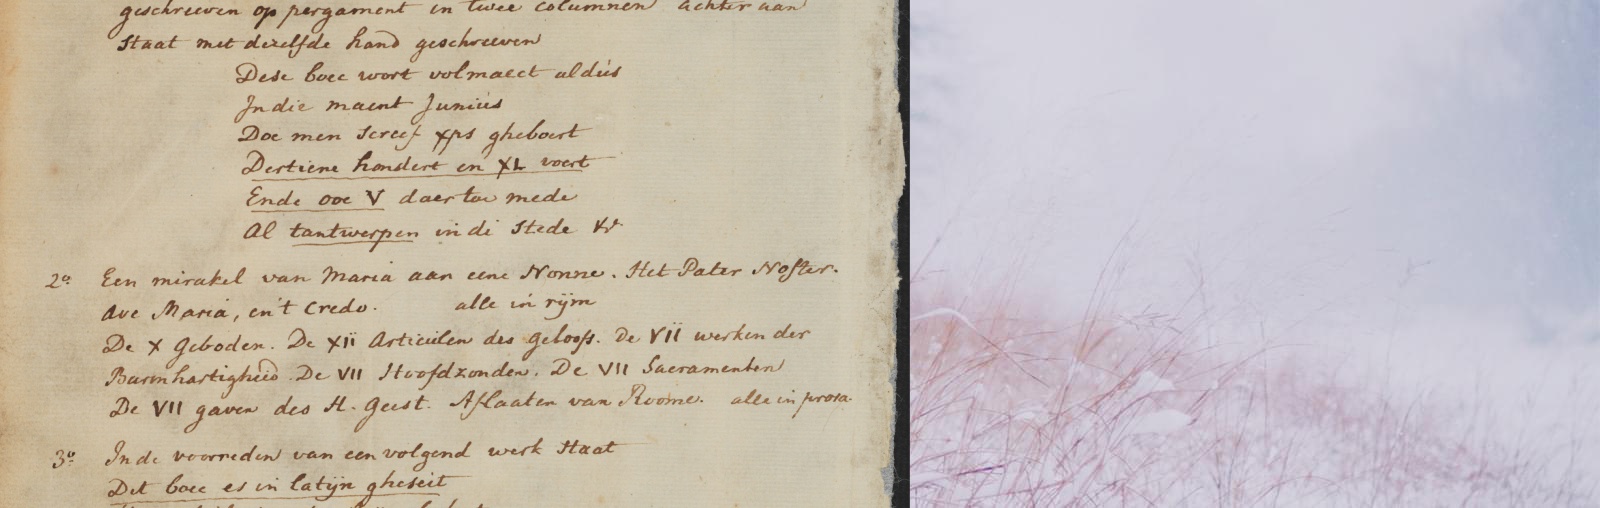 geschreeven op pergament in twee columnen achter aan
Staat met dezelfde hand geschreeven
Dese boec wort volmaect aldus
In die maent Junius
Doe men screef xps gheboert
Dertiene hondert en XL voert
Ende ooc V daer toe mede
Al tantwerpen in di Stede &c
2º Een mirakel van Maria aan eene Nonne. Het Pater Noster.
Ave Maria, en't Credo. alle in rijm
De X Geboden. De XII Articulen des geloofs. De VII werken der
Barmhartigheid. De VII Hoofdzonden. De VII Sacramenten
De VII gaven des H. Geest. Aflaaten van Roome. alle in prosa.
3º In de voorreden van een volgend werk Staat
Dit boec es in latijn gheseit